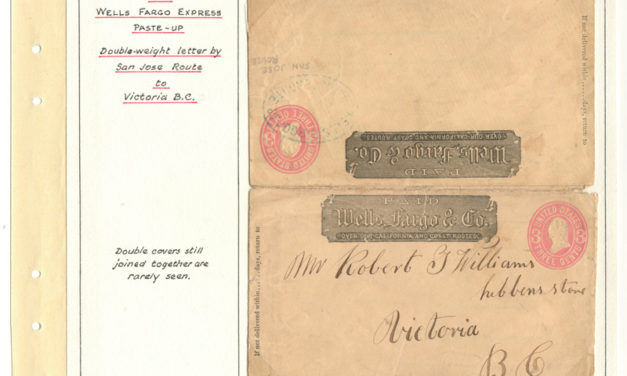 WELLS FARGO EXPRESS
PASTE-UP
Double-weight letter by
San Jose Route
to
Victoria B.C.
Double covers still
joined together are
rarely seen.
SAN JOSE
ROUTE
UNITED STATES
THREE CENTS
OVER OUR CALIFORNIA AND COAST ROUTES
Wells, Fargo & Co.
PAID
If not delivered within.....days, return to
PAID
Wells, Fargo & Co.
OVER OUR CALIFORNIA AND COAST ROUTES
UNITED STATES
THREE CENTS
If not delivered within.....days, return to
Mr Robert J Williams
hibbens store
Victoria
B C